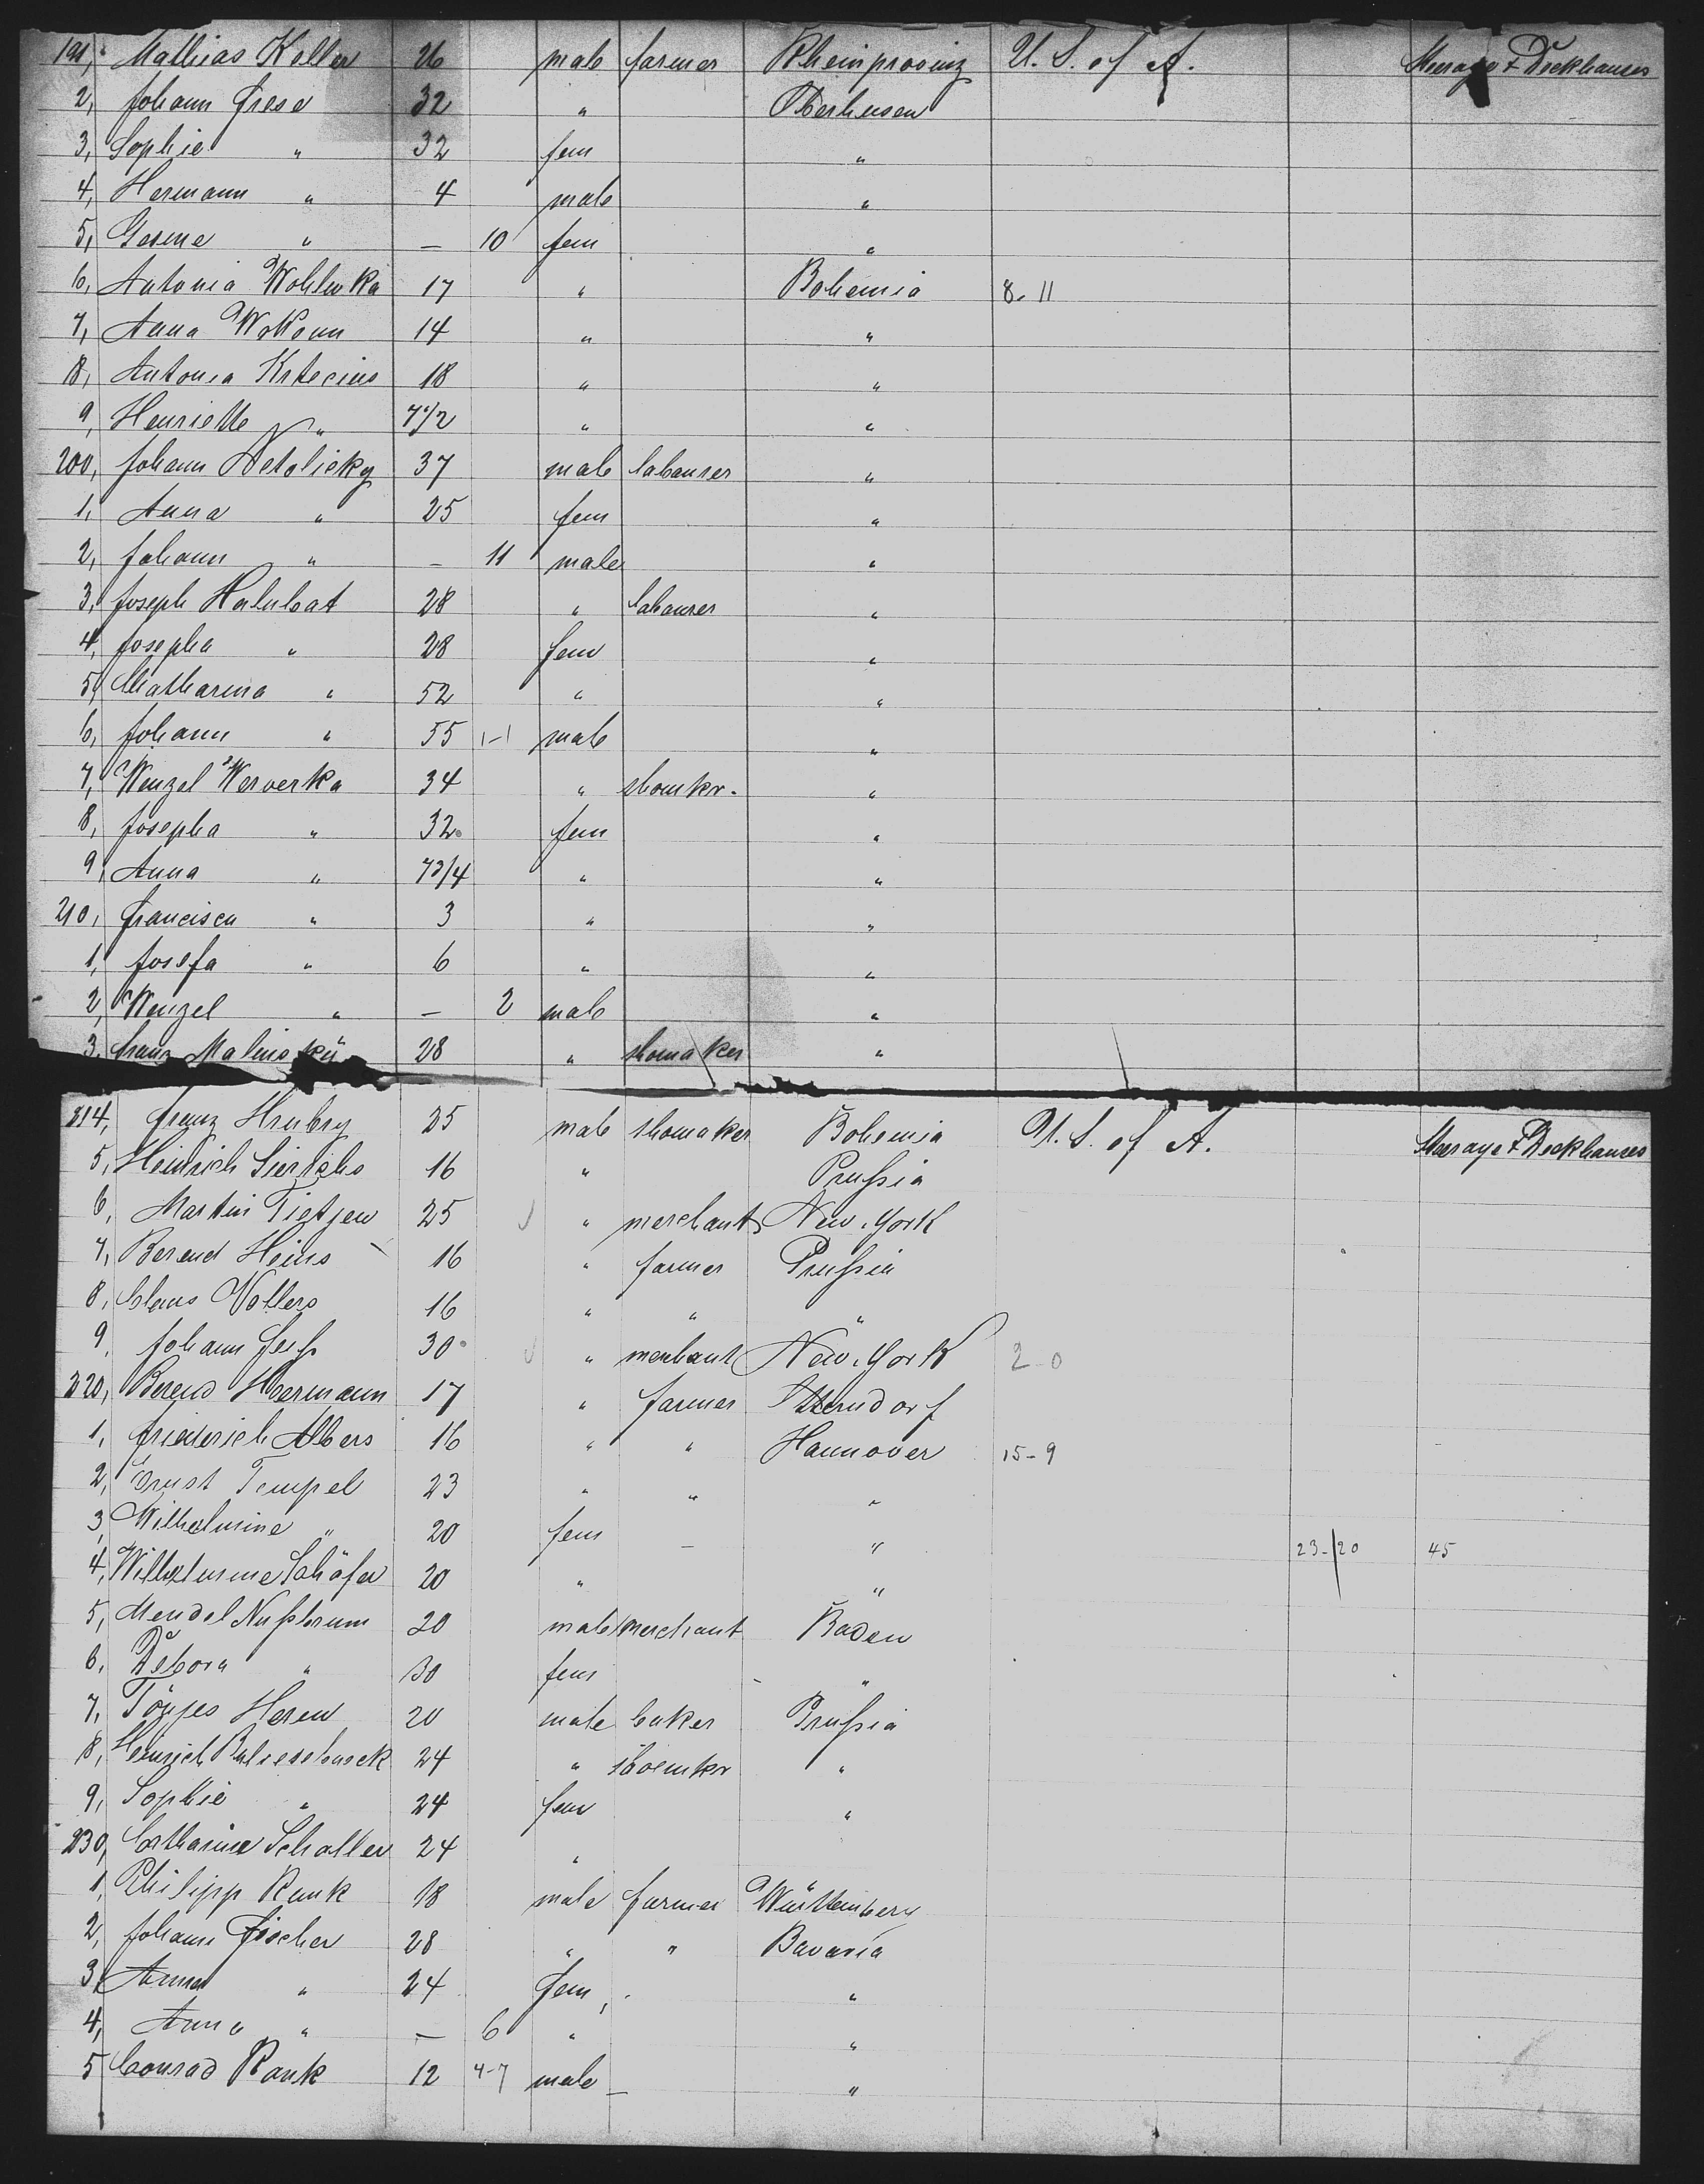 191, Mathias Keller 26 male farmer Rheinprovinz U. S. of A. Steerage & Deckhauses
2, Johann Frese 32 " Oberhusen
3, Sophie " 32 fem "
4, Hermann " 4 male "
5, Gesine " — 10 fem "
6, Antonia 17 " Bohemia 8. 11
7, Anna 14 " "
8, Antonia 18 " "
9, Henriette " 7 1/2 " "
200, Johann Netolicky 37 male labourer "
1, Anna " 25 fem "
2, Johann " — 11 male "
3, Joseph Holubat 28 " labourer "
4, Josepha " 28 fem "
5, Catharina " 52 " "
6, Johann " 55 1-1 male "
7, Wenzel Werverka 34 " shomkr. "
8, Josepha " 32 fem "
9, Anna " 7 3/4 " "
210, Francisca " 3 " "
1, Josefa " 6 " "
2, Wenzel " — 2 male "
3, Franz 28 " shomaker "
214, Franz Hrubry 25 male shomaker Bohemia U. S. of A. Steerage & Deckhauses
5, Heinrich 16 " Prußia
6, Martin Tietjen 25 " merchant New-York
7, Berend Heins 16 " farmer Prußia
8, Claus Vollers 16 " " "
9, Johann 30 " merchant New-York 2-0
220, Berend Heermann 17 " farmer
1, Friederich Albers 16 " " Hannover 15-9
2, Ernst Tempel 23 " " "
3, Wilhelmine " 20 fem — " 23-20 45
4, Wilhelmine Schäfer 20 " "
5, Mendel Nußbaum 20 male merchant Baden
6, Debora " 30 fem - "
7, Tönjes Heren 20 male baker Prußia
8, Heinrich 24 " shoemkr "
9, Sophie " 24 fem "
230, Catharine Schaller 24 "
1, Philipp Rank 18 male farmer Württemberg
2, Johann Fischer 28 " " Bavaria
3, Anna " 24 fem, "
4, Anna " — 6 " "
5 Conrad Rank 12 4-7 male — "